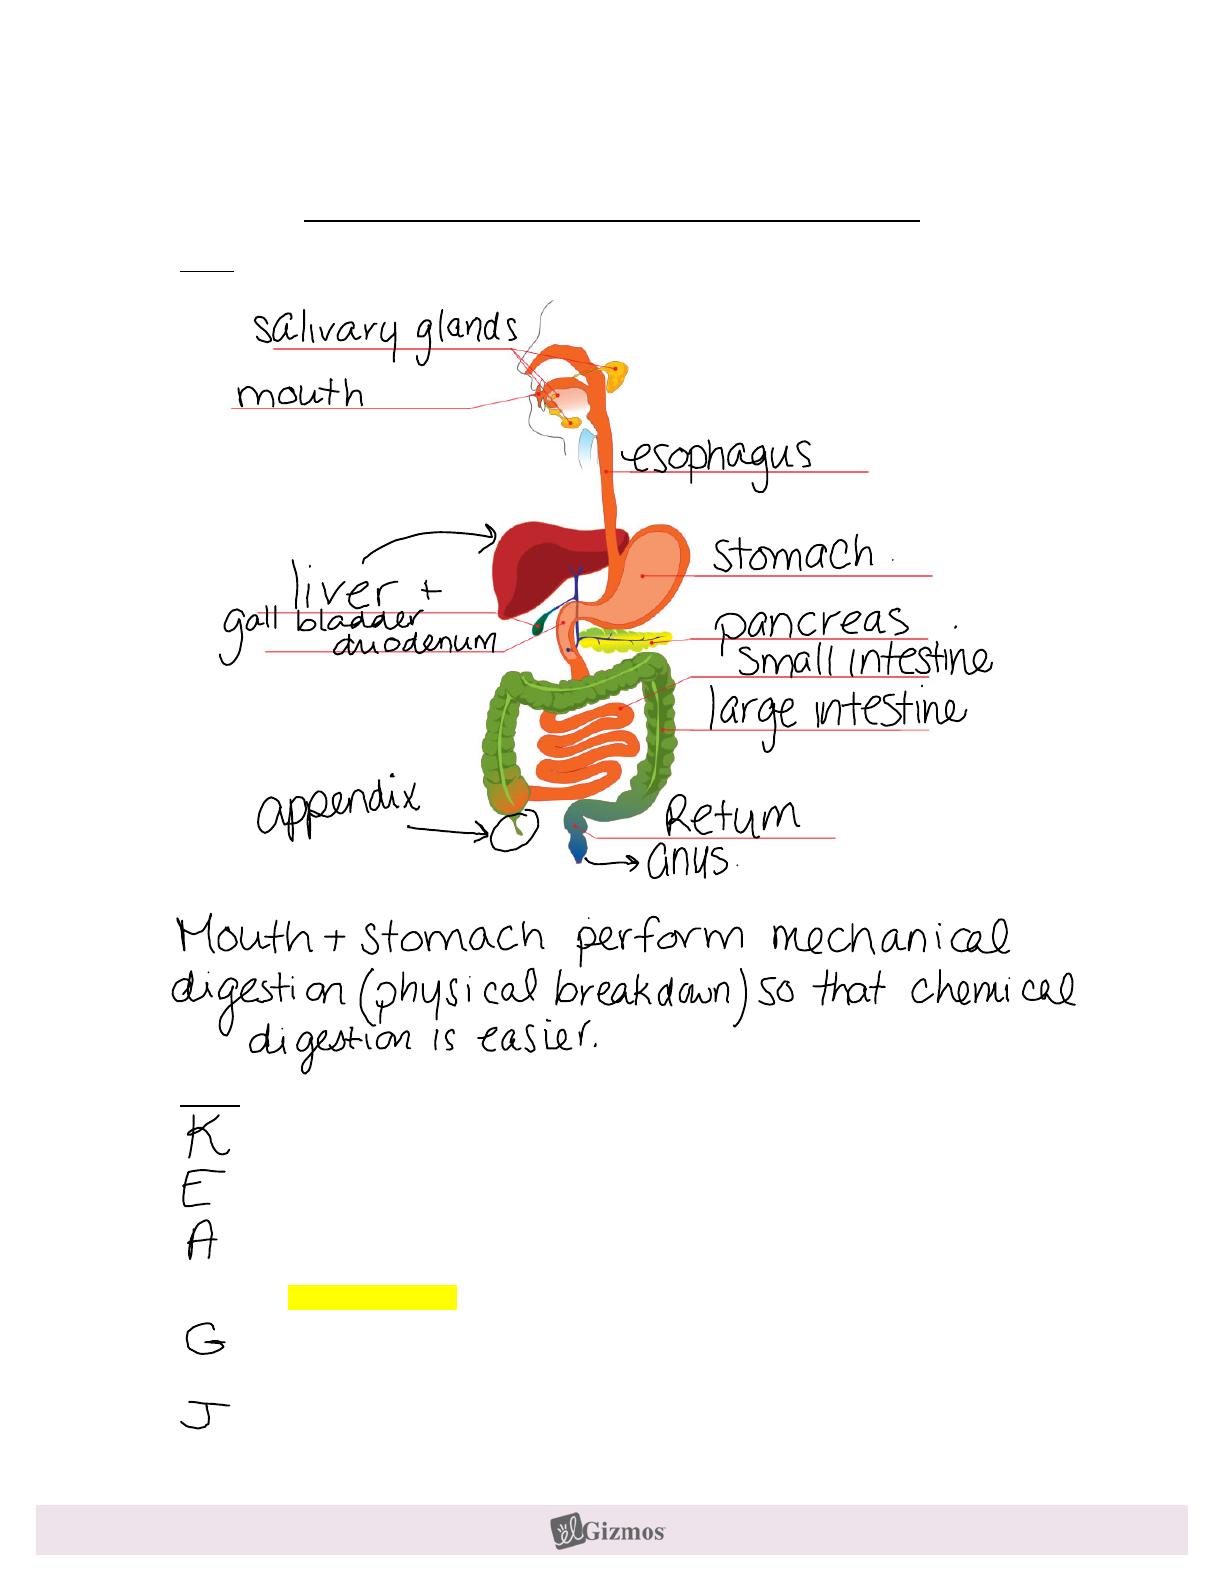 salivary glands
mouth
esophagus
stomach
liver +
gall bladder
duodenum
pancreas
small intestine
large intestine
appendix
Retum
anus.
Mouth + stomach perform mechanical
digestion (physical breakdown) so that chemical
digestion is easier.
K
E
A
G
J
Gizmos